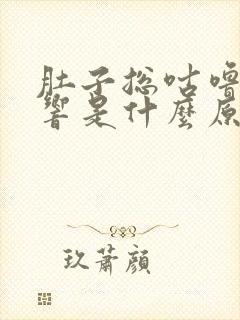 肚子總咕嚕
響是什麼原
玖蕭顏